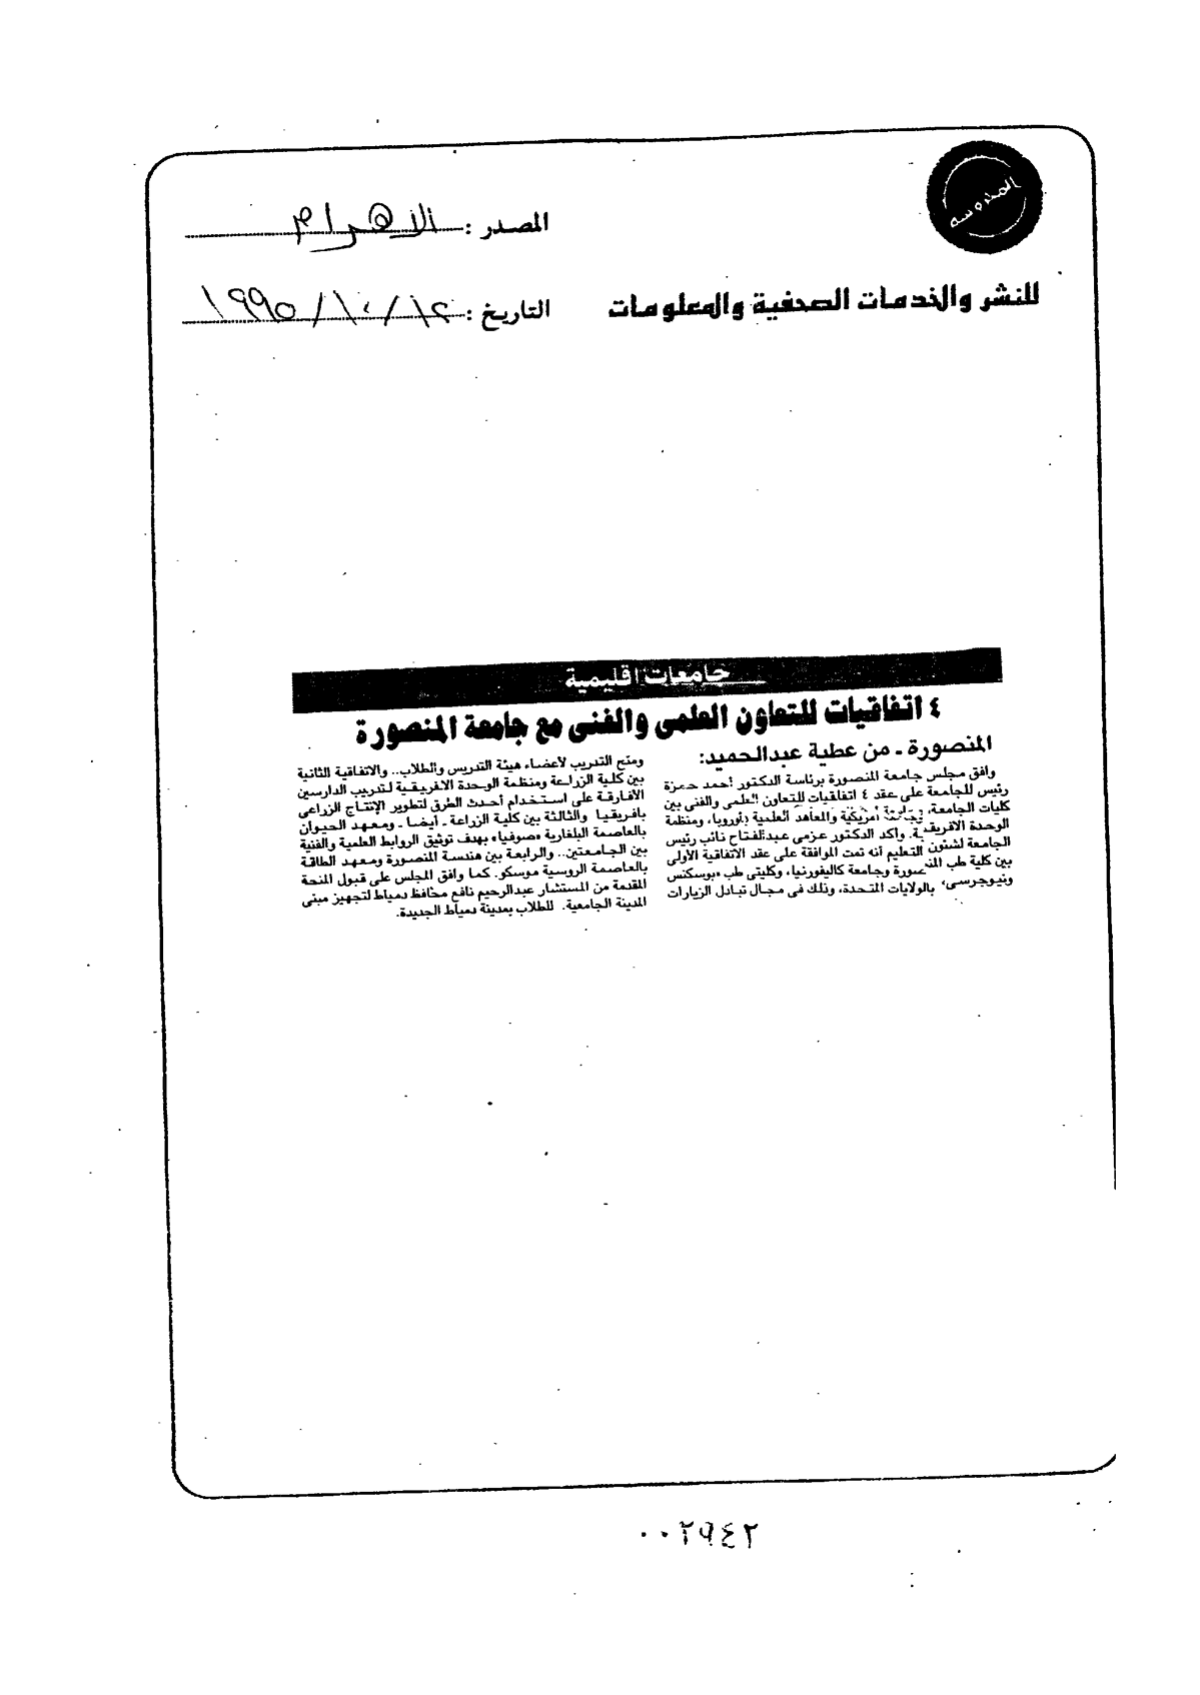 المحروسه
للنشر والخدمات الصحفية والمعلومات
المصدر : الاهرام
التاريخ : ١٢/١٠/١٩٩٥
جامعات اقليمية
٤ اتفاقيات للتعاون العلمى والفنى مع جامعة المنصورة
المنصورة ـ من عطية عبدالحميد:
وافق مجلس جامعة المنصورة برئاسة الدكتور أحمد حمزة
رئيس للجامعة على عقد ٤ اتفاقيات للتعاون العلمى والفنى بين
كليات الجامعة، وجامعة أمريكية والمعاهد العلمية بأوروبا، ومنظمة
الوحدة الافريقية. وأكد الدكتور عزمى عبدالفتاح نائب رئيس
الجامعة لشئون التعليم أنه تمت الموافقة على عقد الاتفاقية الأولى
بين كلية طب المنصورة وجامعة كاليفورنيا، وكليتى طب «بوسكنس
ونيوجرسى» بالولايات المتحدة، وذلك فى مجال تبادل الزيارات
ومنح التدريب لأعضاء هيئة التدريس والطلاب.. والاتفاقية الثانية
بين كلية الزراعة ومنظمة الوحدة الافريقية لتدريب الدارسين
الأفارقة على استخدام أحدث الطرق لتطوير الإنتاج الزراعى
بافريقيا والثالثة بين كلية الزراعة ـ أيضا ـ ومعهد الحيوان
بالعاصمة البلغارية «صوفيا» بهدف توثيق الروابط العلمية والفنية
بين الجامعتين.. والرابعة بين هندسة المنصورة ومعهد الطاقة
بالعاصمة الروسية موسكو. كما وافق المجلس على قبول المنحة
المقدمة من المستشار عبدالرحيم نافع محافظ دمياط لتجهيز مبنى
المدينة الجامعية. للطلاب بمدينة دمياط الجديدة.
٠٠٢٩٤٢